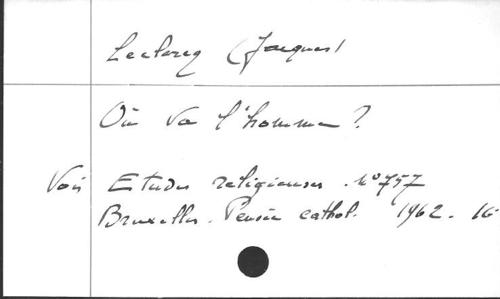 Leclercq (Jacques)
Où va l'homme?
Voir Etudes religieuses. N°757
Bruxelles. Pensée cathol. 1962. 16